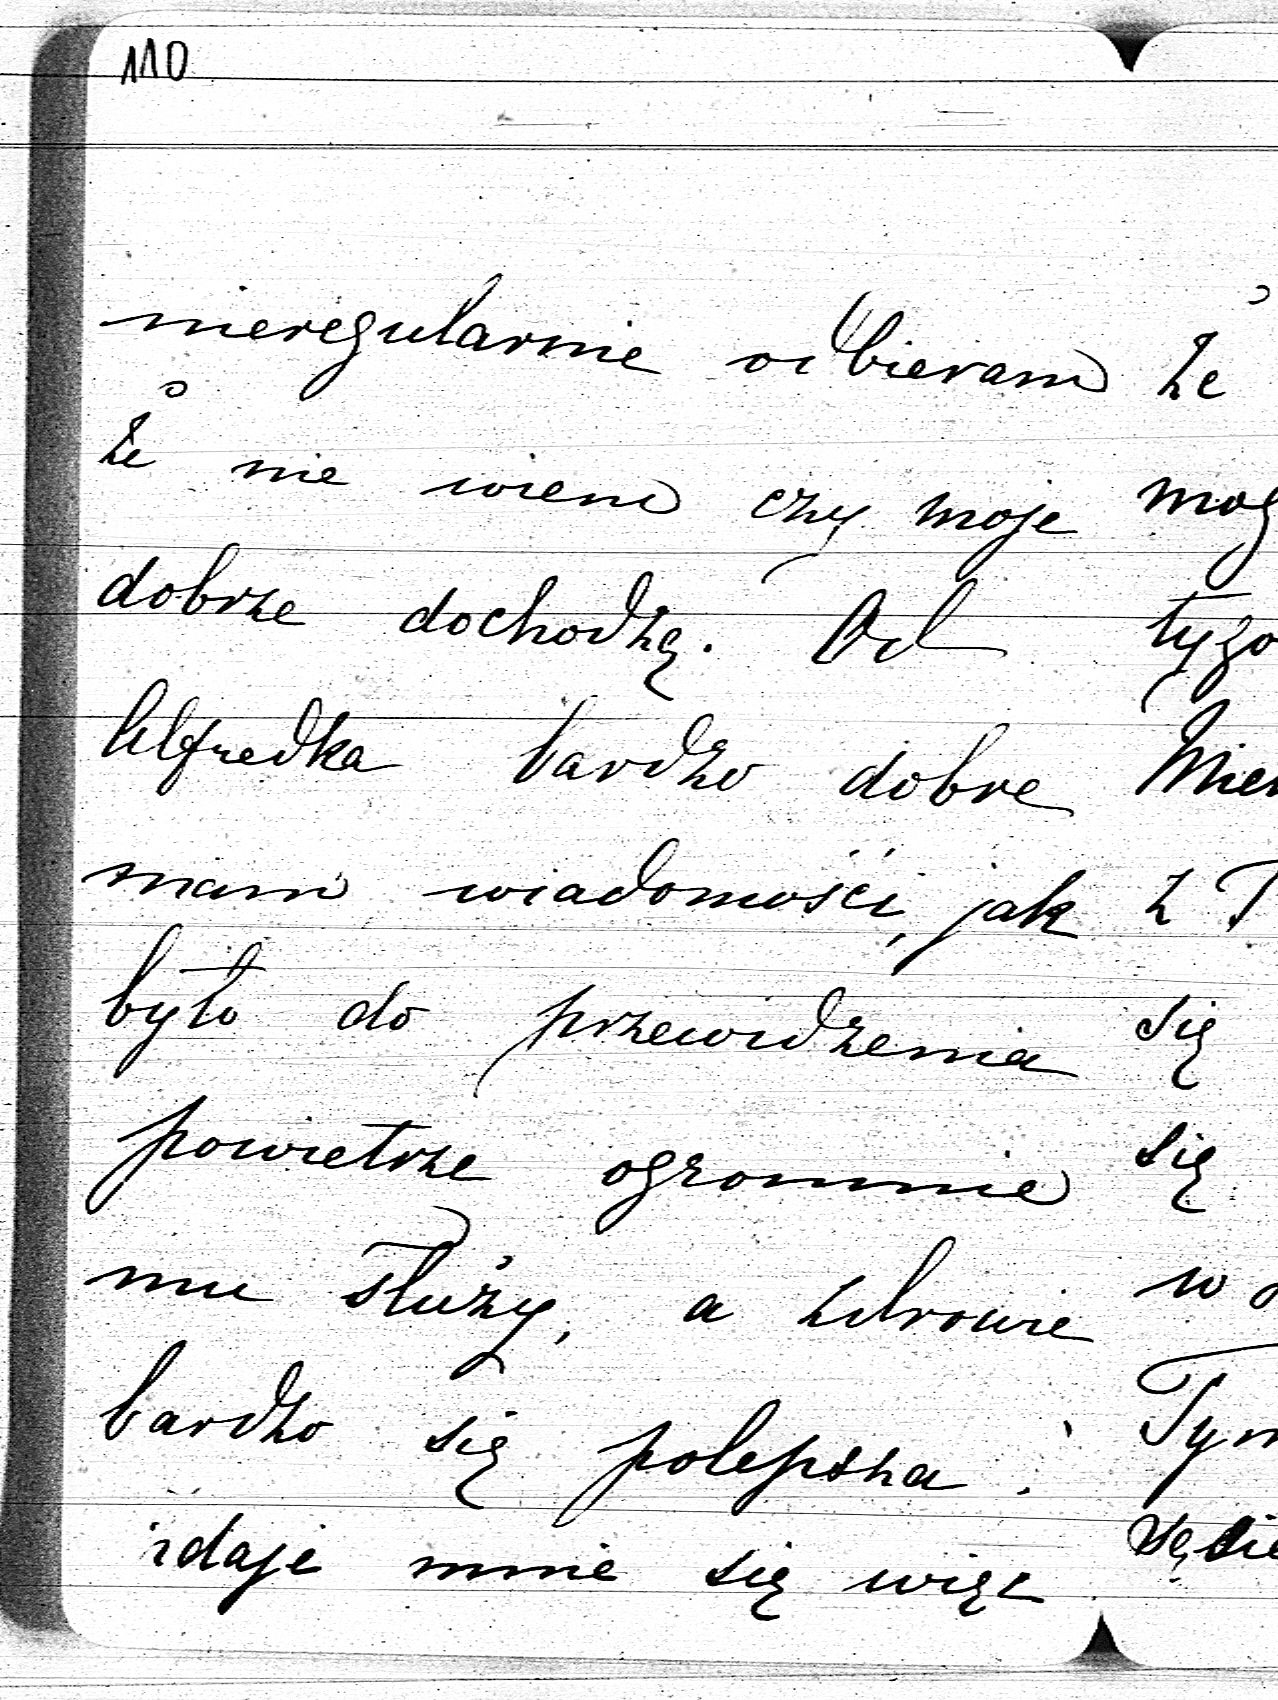 110
nieregularnie odbieram
że nie wiem czy moje
dobrze dochodzą. Od
Alfredka bardzo dobre
mam wiadomości, jak
było do przewidzenia
powietrze ogromnie
mu służy, a zdrowie
bardzo się polepsza.
zdaje mnie się więc
że
mog
tygo
Mier
z T
się
się
w
Tym